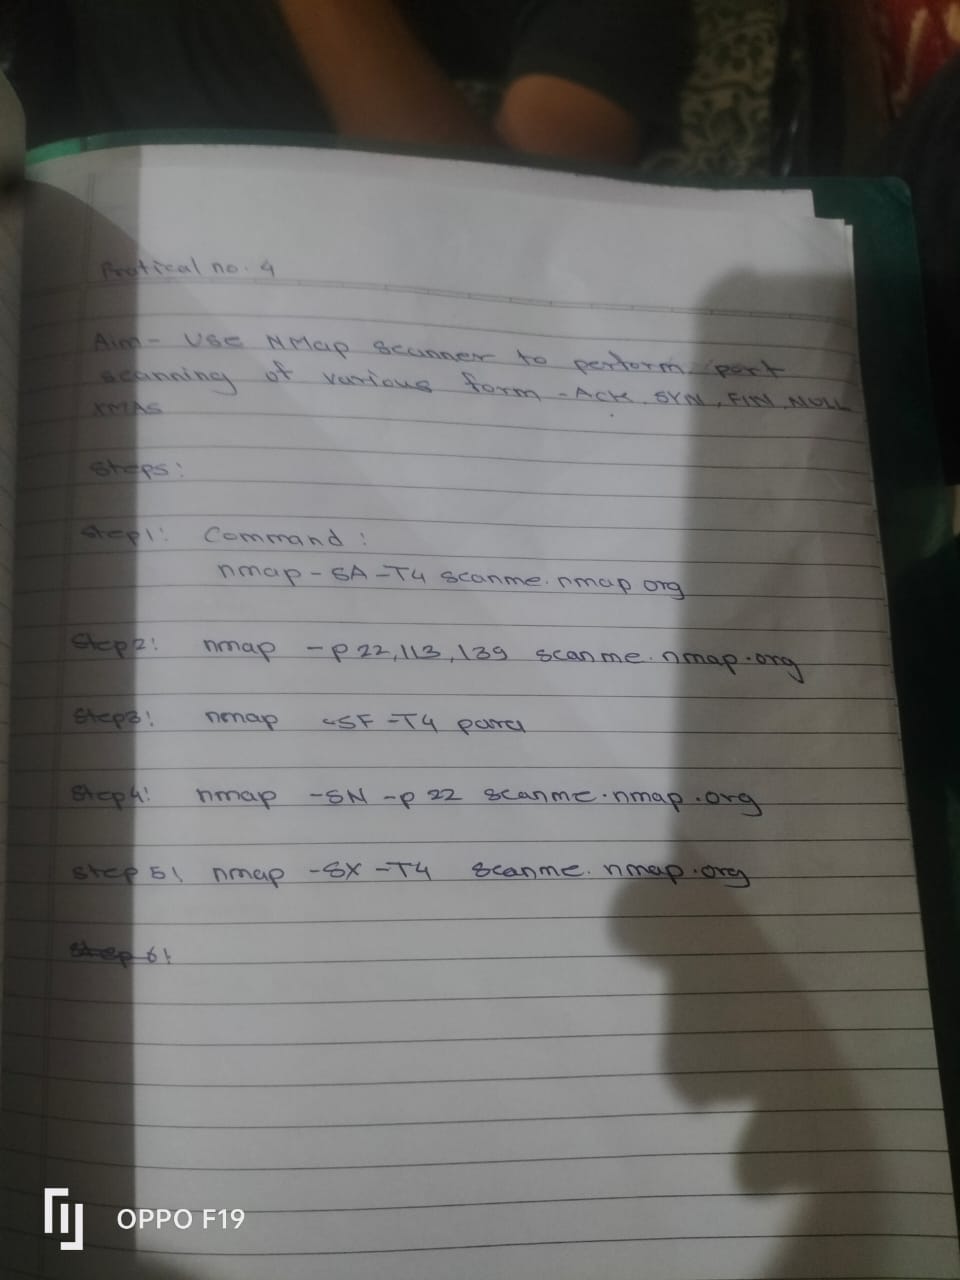 Pratical no. 4
Aim - Use NMap scanner to perform port
scanning of various form - ACK, SYN, FIN, NULL
XMAS
Steps:
Step1: Command:
nmap -SA -T4 scanme.nmap org
Step2: nmap -p 22,113,139 scanme.nmap.org
Step3: nmap -SF -T4 para
Step4: nmap -SN -p 22 scanme.nmap.org
Step 5: nmap -SX -T4 scanme.nmap.org
Step 6:
OPPO F19